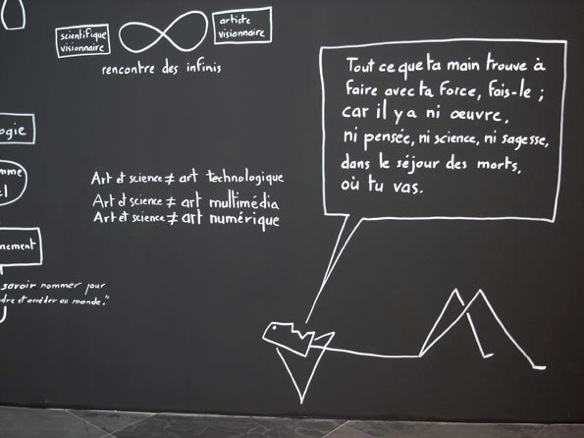 scientifique
visionnaire
artiste
visionnaire
rencontre des infinis
Tout ce que ta main trouve à
faire avec ta force, fais-le ;
car il y a ni œuvre,
ni pensée, ni science, ni sagesse,
dans le séjour des morts,
où tu vas.
ogie
mme
l
Art et science ≠ art technologique
Art et science ≠ art multimédia
Art et science ≠ art numérique
nement
savoir nommer pour
dre et accéder au monde."